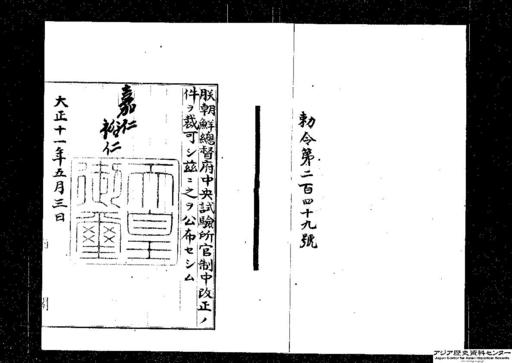 勅令第二百四十九號
朕朝鮮總督府中央試驗所官制中改正ノ
件ヲ裁可シ茲ニ之ヲ公布セシム
嘉仁
裕仁
天皇
御璽
大正十一年五月三日
アジア歴史資料センター
Japan Center for Asian Historical Records